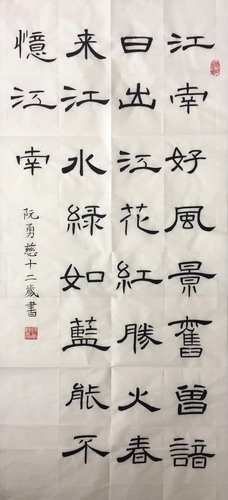 江南好風景舊曾諳
日出江花紅勝火春
来江水緑如藍能不
憶江南
阮勇慈十二歲書